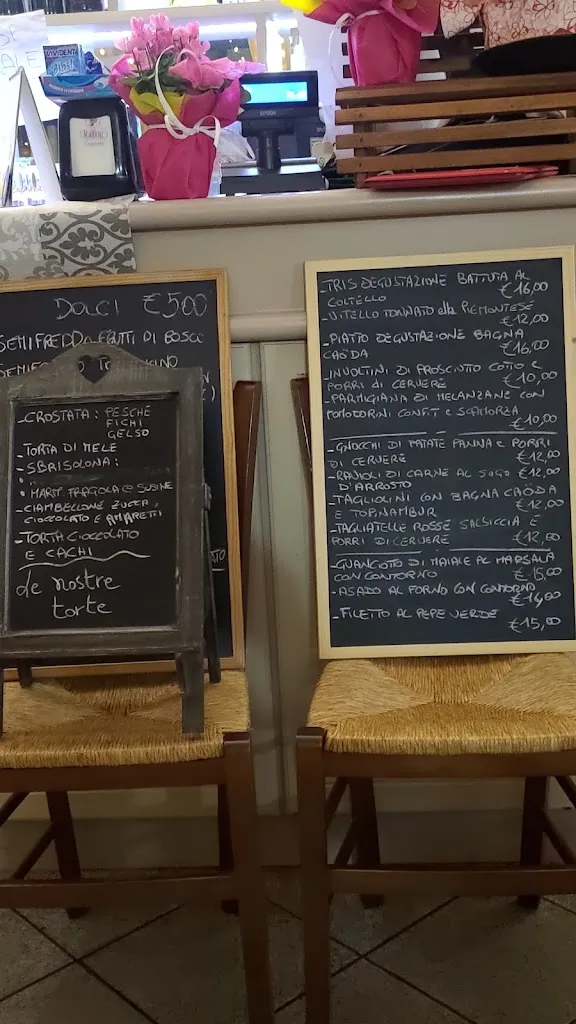 DOLCI €5,00
SEMIFREDDO FRUTTI DI BOSCO
- CROSTATA: PESCHE
FICHI
GELSO
- TORTA DI MELE
- SBRISOLONA:
MARM. FRAGOLA e SUSINE
- CIAMBELLONE ZUCCA,
CIOCCOLATO E AMARETTI
- TORTA CIOCCOLATO
E CACHI
le nostre
torte
- TRIS DEGUSTAZIONE BATTUTA AL
COLTELLO €16,00
- VITELLO TONNATO alla PIEMONTESE
€12,00
- PIATTO DEGUSTAZIONE BAGNA
CAÖDA €16,00
- INVOLTINI DI PROSCIUTTO COTTO E
PORRI DI CERVERE €10,00
- PARMIGIANA DI MELANZANE CON
POMODORINI CONFIT E SCAMORZA
€10,00
- GNOCCHI DI PATATE PANNA E PORRI
DI CERVERE €12,00
- RAVIOLI DI CARNE AL SUGO €12,00
D'ARROSTO
- TAGLIOLINI CON BAGNA CAÖDA
E TOPINAMBUR €12,00
- TAGLIATELLE ROSSE SALSICCIA E
PORRI DI CERVERE €12,00
- GUANCIOTTO DI MAIALE AL MARSALA
CON CONTORNO €15,00
- ASADO AL FORNO CON CONTORNO
€14,00
- FILETTO AL PEPE VERDE
€15,00